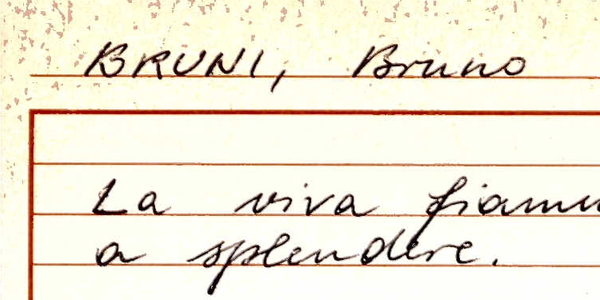 BRUNI, Bruno
La viva
a splendere.